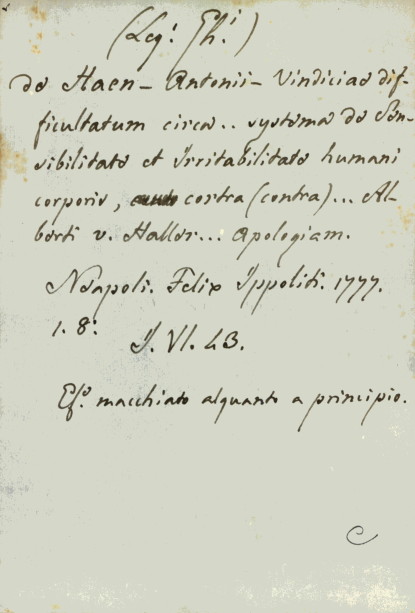 (Leg: Ph:)
de Haen - Antonii - Vindiciae dif-
ficultatum circa .. systema de Sen-
sibilitate et Irritabilitate humani
corporis, cortra (contra) ... Al-
berti v. Haller ... apologiam.
Neapoli. Felix Ippoliti. 1777.
1. 8:
J. VI. 43.
Es.º macchiato alquanto a principio.
C